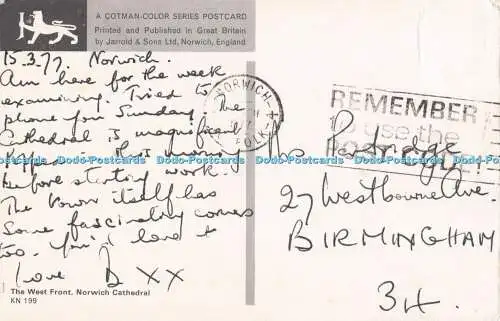 A COTMAN-COLOR SERIES POSTCARD
Printed and Published in Great Britain
by Jarrold & Sons Ltd, Norwich, England
15.3.77. Norwich.
Am here for the week
examining. Tried to
phone you Sunday. The
Cathedral is magnificent
this morning
before starting work.
The town itself has
Some fascinating corners
too. You'd love it
Love D XX
The West Front, Norwich Cathedral
KN 199
NORWICH
REMEMBER
use the
Ms Padridge
27 Westbourne Ave.
BIRMINGHAM
34.
Dodo-Postcards Dodo-Postcards Dodo-Postcards Dodo-Postcards Dodo-Postcards